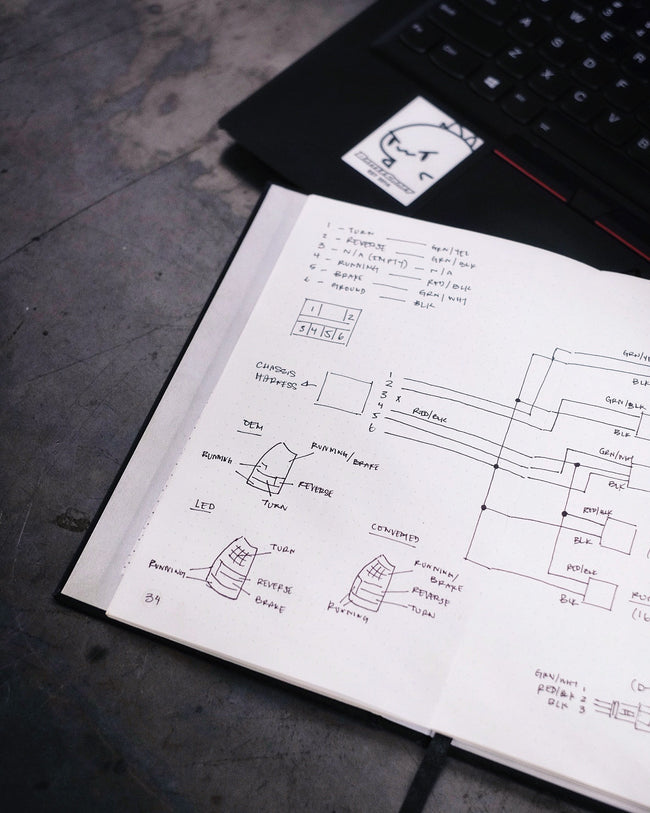 1 - TURN —— GRN/YEL
2 - REVERSE —— GRN/BLK
3 - N/A (EMPTY) - N/A
4 - RUNNING —— RED/BLK
5 - BRAKE —— GRN/WHT
6 - GROUND —— BLK
1 2
3 4 5 6
CHASSIS
HARNESS
1
2
3 X
4
5
6
RED/BLK
GRN/YE
BLK
GRN/BLK
BLK
GRN/WHT
BLK
RED/BLK
BLK
RED/BLK
BLK
OEM
RUNNING
RUNNING/BRAKE
REVERSE
TURN
LED
TURN
RUNNING
REVERSE
BRAKE
CONVERTED
RUNNING/
BRAKE
REVERSE
TURN
RUNNING
(16
GRN/WHT 1
RED/BLK 2
BLK 3
34
TWT
A S D
Z X C V B
W E R